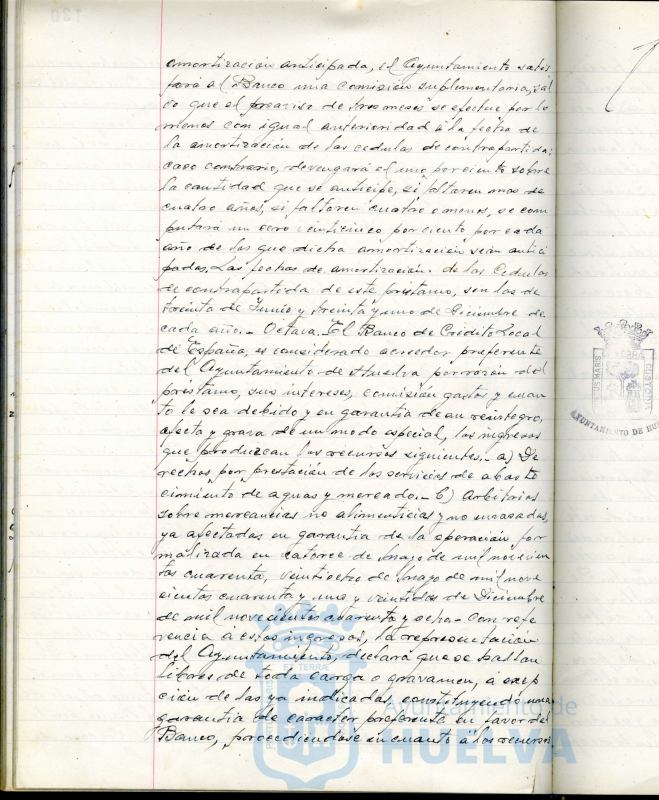 amortización anticipada, el Ayuntamiento satis
fará al Banco una comisión suplementaria, sal
vo que el preaviso de tres meses se efectue por lo
menos con igual anterioridad á la fecha de
la amortización de las cedulas de contrapartida;
caso contrario, devengará el uno por ciento sobre
la cantidad que se anticipe, si faltaren mas de
cuatro años, si faltaren cuatro o menos, se com
putará un cero veinticinco por ciento por cada
año de los que dicha amortización sean antici
padas. Las fechas de amortización de las Cedulas
de contrapartida de este préstamo, son las de
treinta de Junio y treinta y uno de Diciembre de
cada año.- Octava. El Banco de Crédito Local
de España, es considerado acreedor preferente
del Ayuntamiento de Huelva por razón del
préstamo, sus intereses, comisión gastos y cuan
to le sea debido y en garantia de su reintegro,
afecta y grava de un modo especial, los ingresos
que produzcan los recursos siguientes.- a) De
rechos por prestación de los servicios de abaste
cimiento de aguas y mercado.- b) Arbitrios
sobre mercancias no alimenticias y no envasadas,
ya afectadas en garantia de la operación for
malizada en catorce de Mayo de mil novecien
tos cuarenta, veintiocho de Mayo de mil nove
cientos cuarenta y uno y veintidos de Diciembre
de mil novecientos cuarenta y ocho.- Con refe
rencia á estos ingresos, la representación
del Ayuntamiento, declara que se hallan
libres de toda carga o gravamen, á excep
ción de las ya indicadas, constituyendo una
garantia de caracter preferente en favor del
Banco, procediendose en cuanto á los recursos
Ayuntamiento de
HUELVA
AYUNTAMIENTO DE HU